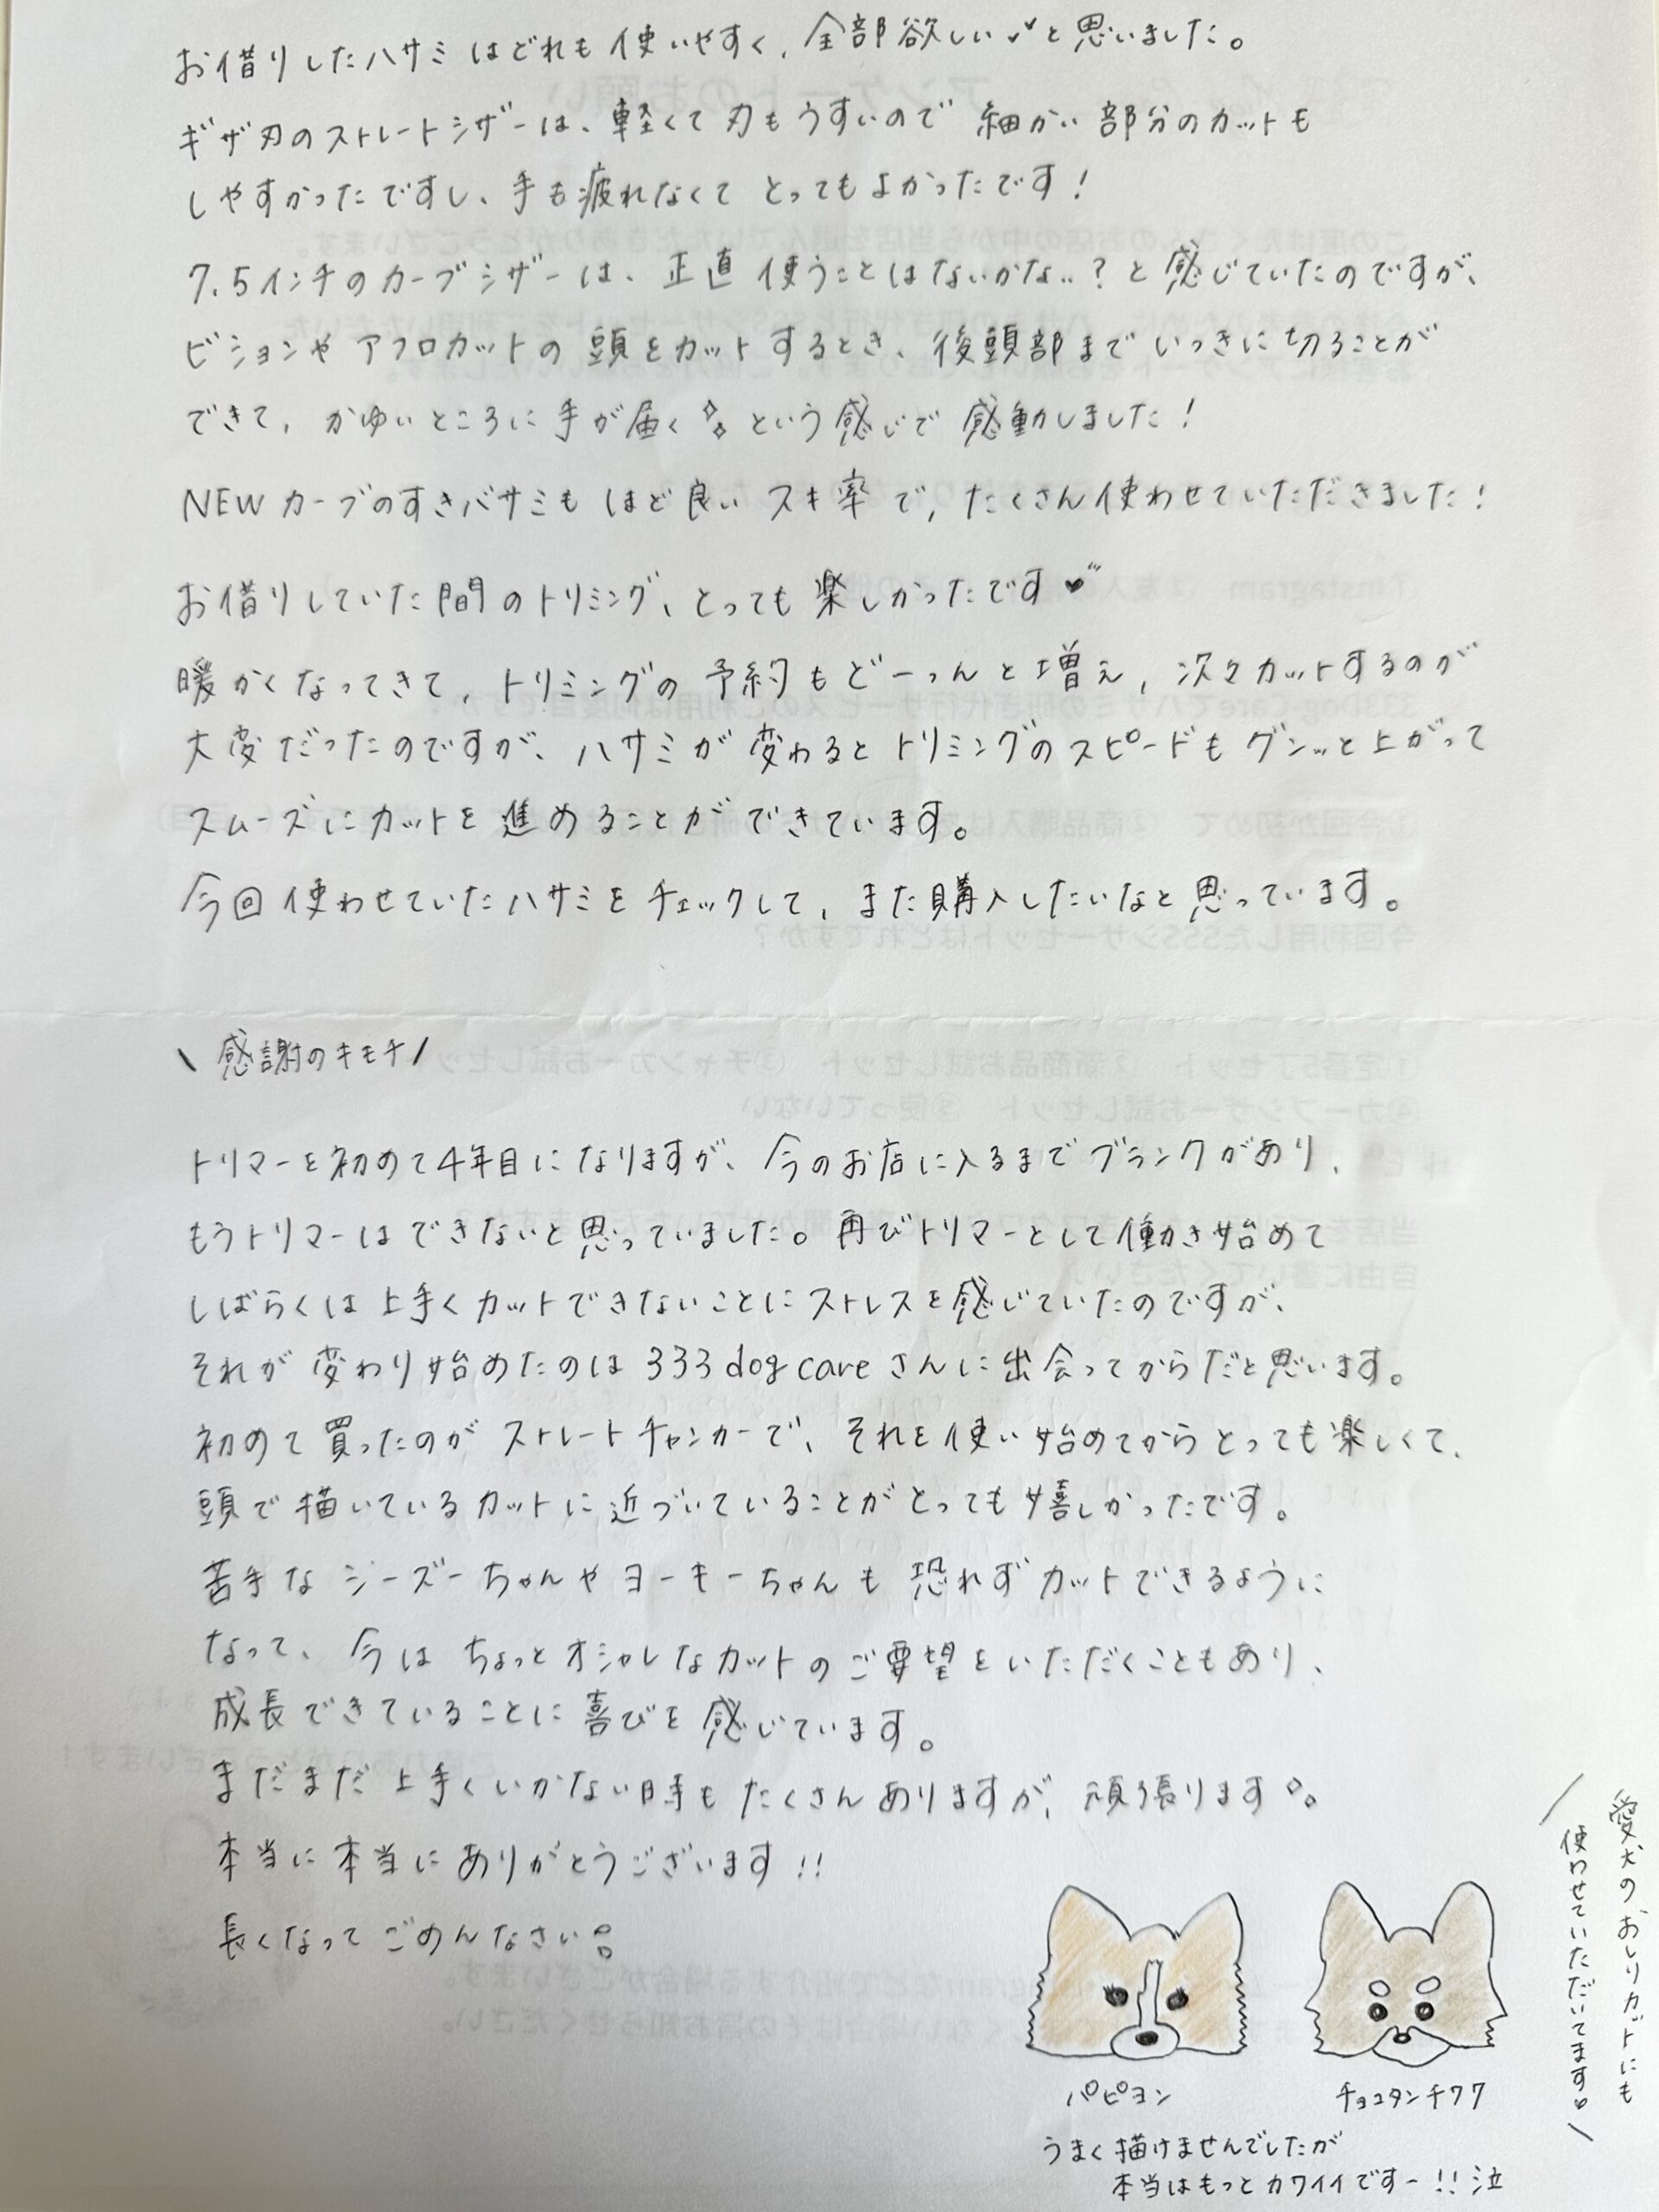 お借りしたハサミはどれも使いやすく、全部欲しい✓と思いました。
ギザ刃のストレートシザーは、軽くて刃もうすいので細かい部分のカットも
しやすかったですし、手も疲れなくてとってもよかったです！
7.5インチのカーブシザーは、正直使うことはないかな..？と感じていたのですが、
ビションやアフロカットの頭をカットするとき、後頭部までいっきに切ることが
できて、かゆいところに手が届くという感じで感動しました！
NEWカーブのすきバサミもほど良いスキ率で、たくさん使わせていただきました！
お借りしていた間のトリミング、とっても楽しかったです♥
暖かくなってきて、トリミングの予約もどーっんと増え、次々カットするのが
大変だったのですが、ハサミが変わるとトリミングのスピードもグンッと上がって
スムーズにカットを進めることができています。
今回使わせていたハサミをチェックして、また購入したいなと思っています。
\ 感謝のキモチ /
トリマーを初めて4年目になりますが、今のお店に入るまでブランクがあり、
もうトリマーはできないと思っていました。再びトリマーとして働き始めて
しばらくは上手くカットできないことにストレスを感じていたのですが、
それが変わり始めたのは333dog careさんに出会ってからだと思います。
初めて買ったのがストレートチャンカーで、それを使い始めてからとっても楽しくて、
頭で描いているカットに近づいていることがとっても嬉しかったです。
苦手なシーズーちゃんやヨーキーちゃんも恐れずカットできるように
なって、今はちょっとオシャレなカットのご要望をいただくこともあり、
成長できていることに喜びを感じています。
まだまだ上手くいかない時もたくさんありますが、頑張ります
本当に本当にありがとうございます!!
長くなってごめんなさい
愛犬のおしりカットにも
使わせていただいてます
パピヨン
チョコタンチワワ
うまく描けませんでしたが
本当はもっとカワイイですー!!泣